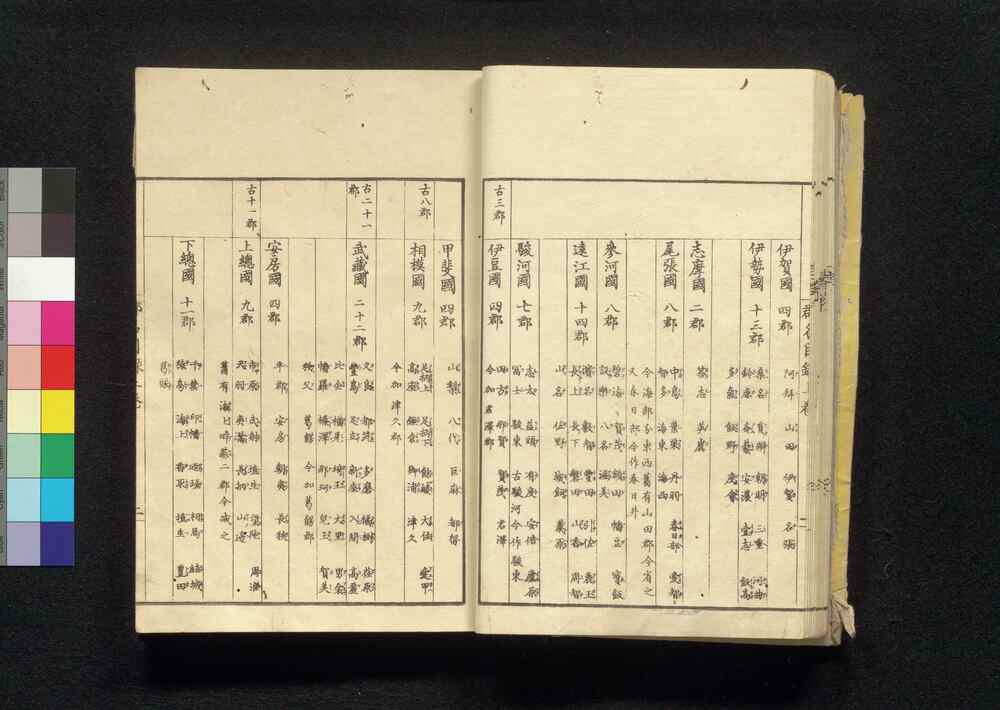 伊賀國　四郡
阿拜　山田　伊賀　名張
伊勢國　十三郡
桑名　員辨　朝明　三重　河曲
鈴鹿　奄藝　安濃　壹志　飯高
多氣　飯野　度會
志摩國　二郡
荅志　英虞
尾張國　八郡
中島　葉栗　丹羽　春日部　愛知
知多　海東　海西
今海部分東西舊有山田郡今省之
又春日部今作春日井
參河國　八郡
碧海　賀茂　額田　幡豆　寶飯
設樂　八名　渥美
遠江國　十四郡
濱名　敷智　豊田　引佐　麁玉
長上　長下　磐田　山香　周智
山名　佐野　城飼　蓁原
駿河國　七郡
志太　益頭　有度　安倍　廬原
冨士　駿東　古駿河今作駿東
古三郡
伊豆國　四郡
田方　那賀　賀茂　君澤
今加君澤郡
甲斐國　四郡
山梨　八代　巨麻　都留
古八郡
相模國　九郡
足柄上　足柄下　餘綾　大住　愛甲
高座　鎌倉　御浦　津久
今加津久郡
古二十一郡
武藏國　二十二郡
久良　都筑　多磨　橘樹　荏原
豐島　足立　新座　入間　高麗
比企　橫見　埼玉　大里　男衾
幡羅　榛澤　那珂　兒玉　賀美
秩父　葛飾　今加葛飾郡
安房國　四郡
平郡　安房　朝夷　長狹
古十一郡
上總國　九郡
市原　武射　埴生　望陀　周淮
天羽　夷灊　長柄　山邊
舊有海上畔蒜二郡今減之
下總國　十一郡
千葉　印幡　匝瑳　相馬　結城
猿島　海上　香取　埴生　豐田
葛飾